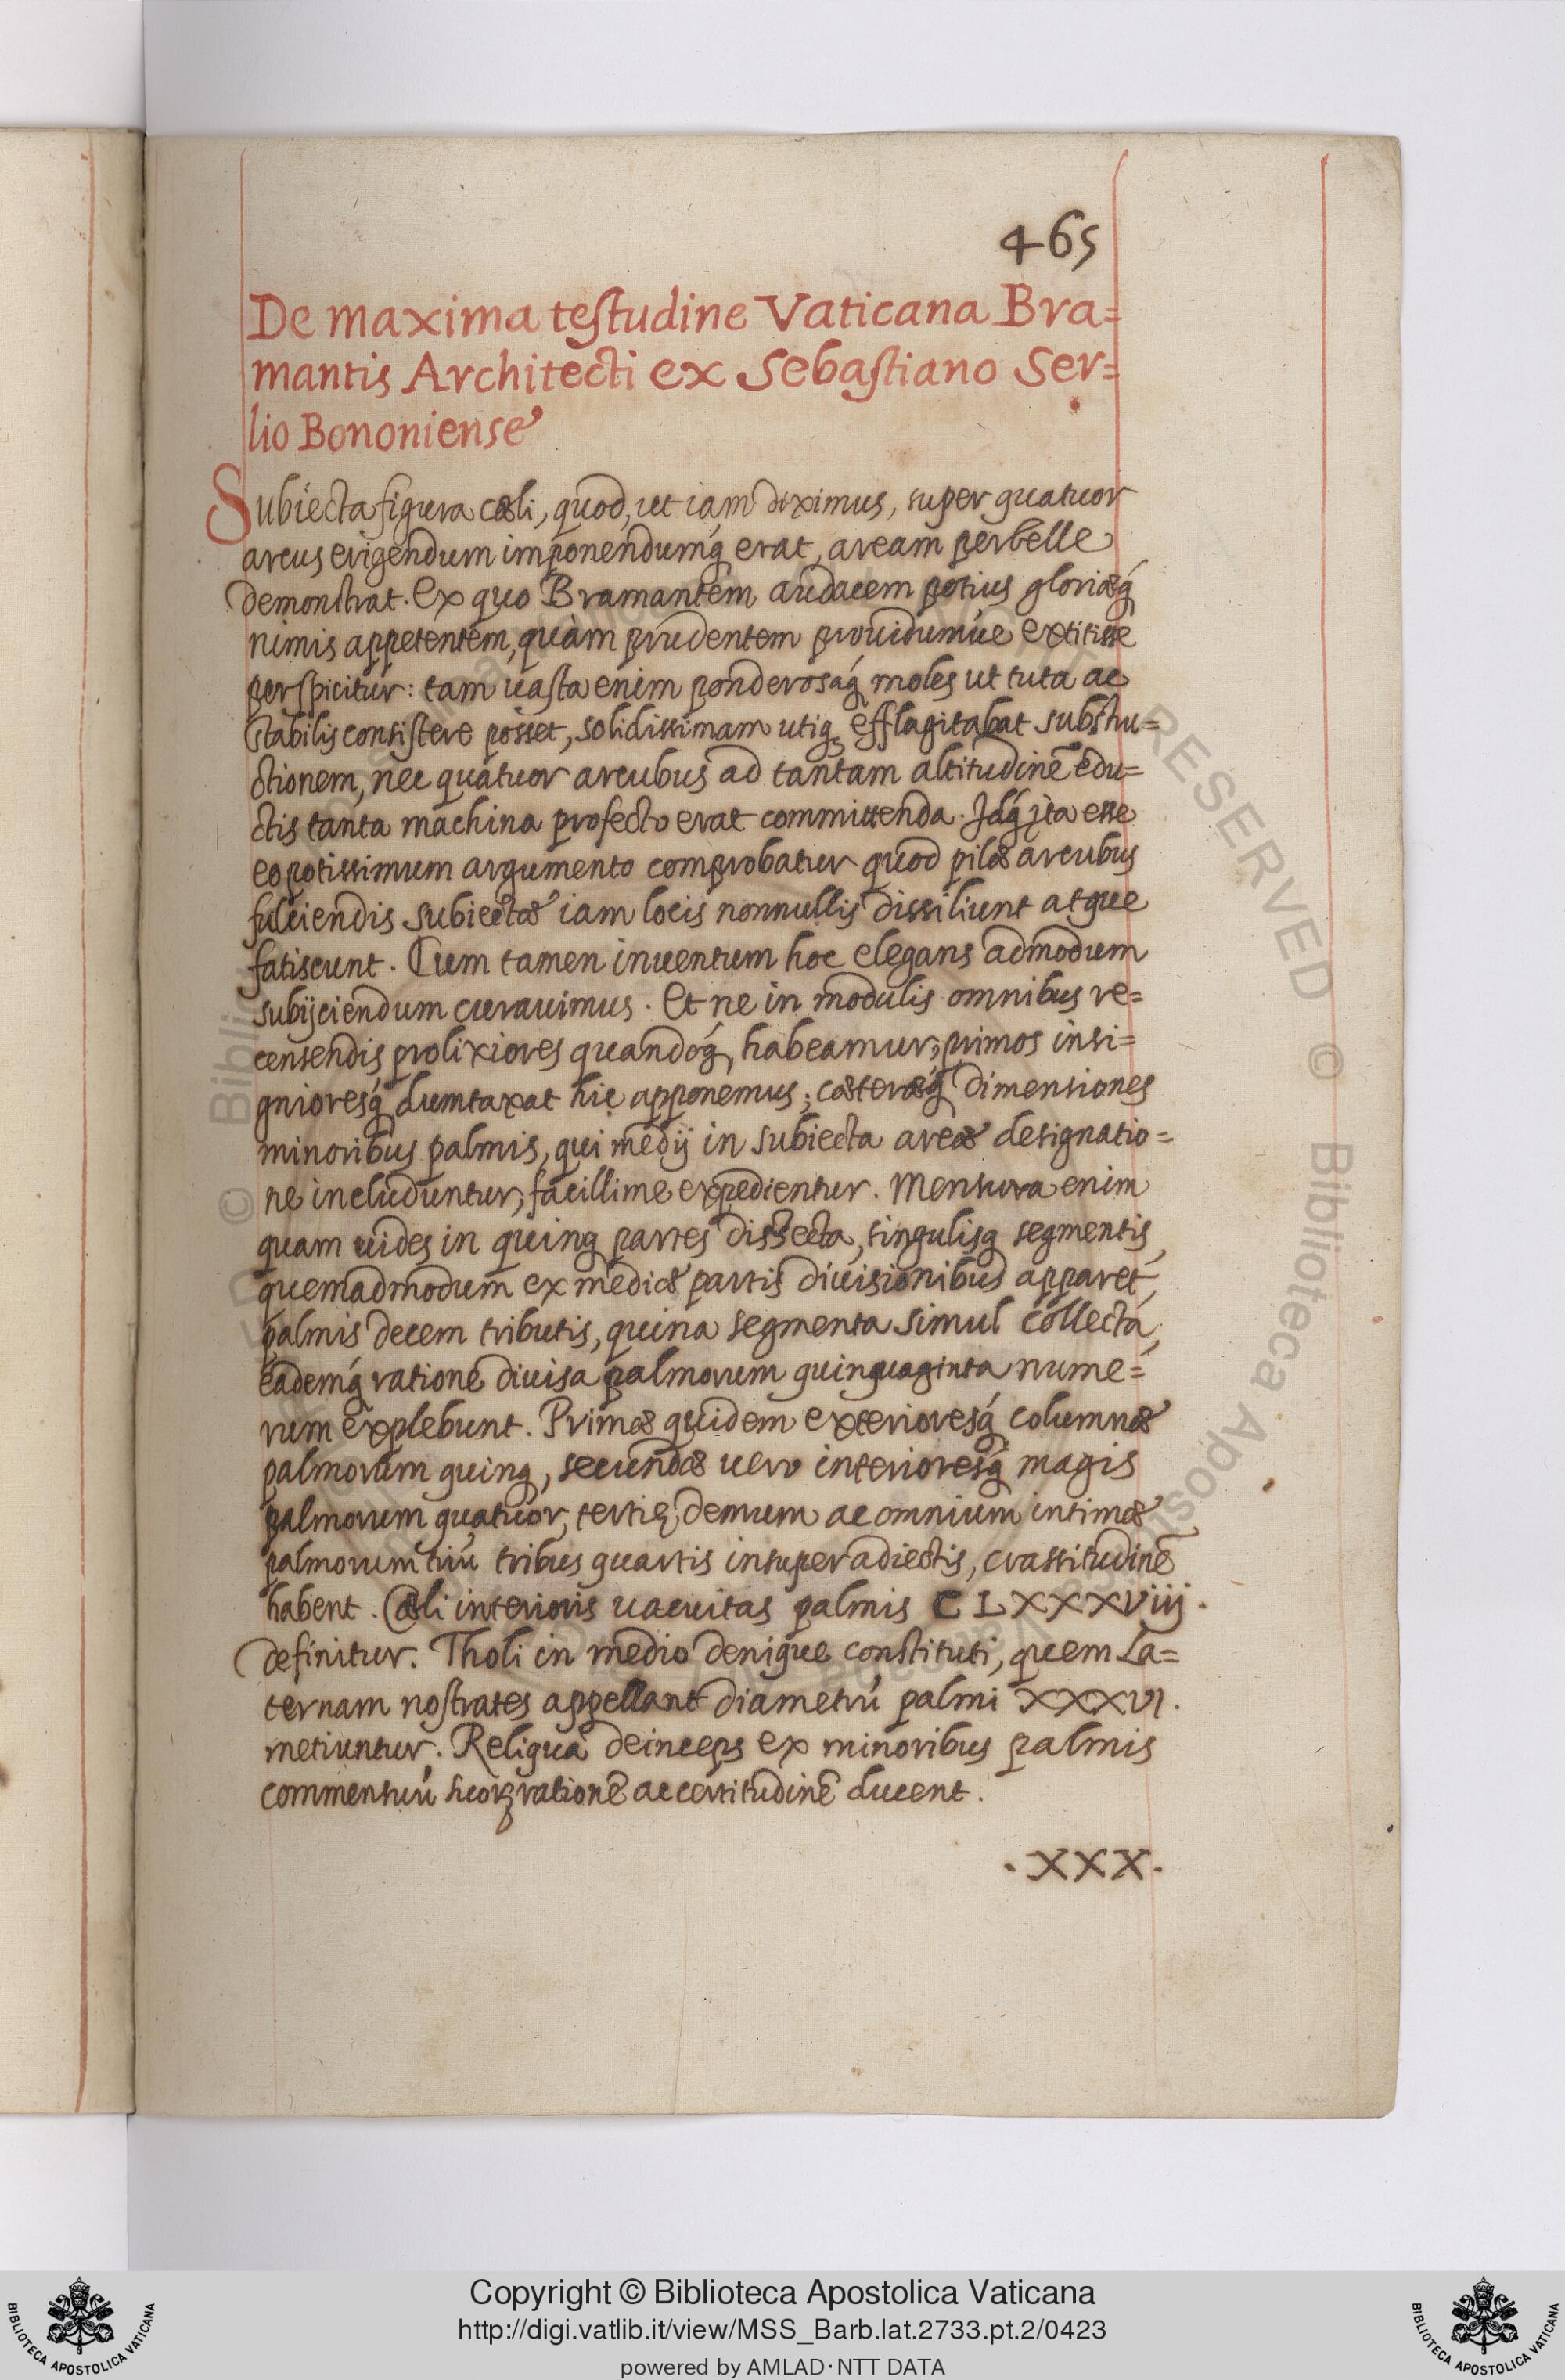 465
De maxima testudine Vaticana Bra=
mantis Architecti ex Sebastiano Ser=
lio Bononiense
Subiecta figura cæli, quod, ut iam diximus, super quatuor
arcus erigendum imponendumq́ erat, aream perbelle
demonstrat. Ex quo Bramantem audacem potius gloriæq́
nimis appetentem, quàm prudentem prouidumúe extitisse
perspicitur: tam uasta enim ponderosáq́ moles ut tuta ac
stabilis consistere posset, solidissimam utiq; efflagitabat substru=
ctionem, nec quatuor arcubus ad tantam altitudinẽ edu=
ctis tanta machina profecto erat committenda. Idq́ ita esse
eo potissimum argumento comprobatur quod pilæ arcubus
fulciendis subiectæ iam locis nonnullis dissiliunt atque
fatiscunt. Cum tamen inuentum hoc elegans admodum
subijciendum curauimus. Et ne in modulis omnibus re=
censendis prolixiores quandoq́, habeamur, primos insi=
gnioresq́ dumtaxat hic apponemus; cæteræq́ dimensiones
minoribus palmis, qui medij in subiecta areæ designatio=
ne includuntur, facillime expedientur. Mensura enim
quam uides in quinq; partes dissecta, singulisq; segmentis,
quemadmodum ex mediæ partis diuisionibus apparet,
palmis decem tributis, quina segmenta simul collecta,
eademq́ ratione diuisa palmorum quinquaginta nume=
rum explebunt. Primæ quidem exterioresq́ columnæ
palmorum quinq;, secundæ uero interioresq́ magis
palmorum quatuor, tertię demum ac omnium intimæ
palmorum triũ tribus quartis insuper adiectis, crassitudinẽ
habent. Cæli interioris uacuitas palmis CLXXXViij.
definitur. Tholi in medio denique constituti, quem La=
ternam nostrates appellant diametrũ palmi XXXVI.
metiuntur. Reliqua deinceps ex minoribus palmis
commensuũ hcoꝝ rationẽ ac certitudinẽ ducent.
·XXX·
© Biblioteca Apostolica Vaticana
RESERVED
Copyright © Biblioteca Apostolica Vaticana
http://digi.vatlib.it/view/MSS_Barb.lat.2733.pt.2/0423
powered by AMLAD·NTT DATA
BIBLIOTECA APOSTOLICA VATICANA
BIBLIOTECA APOSTOLICA VATICANA